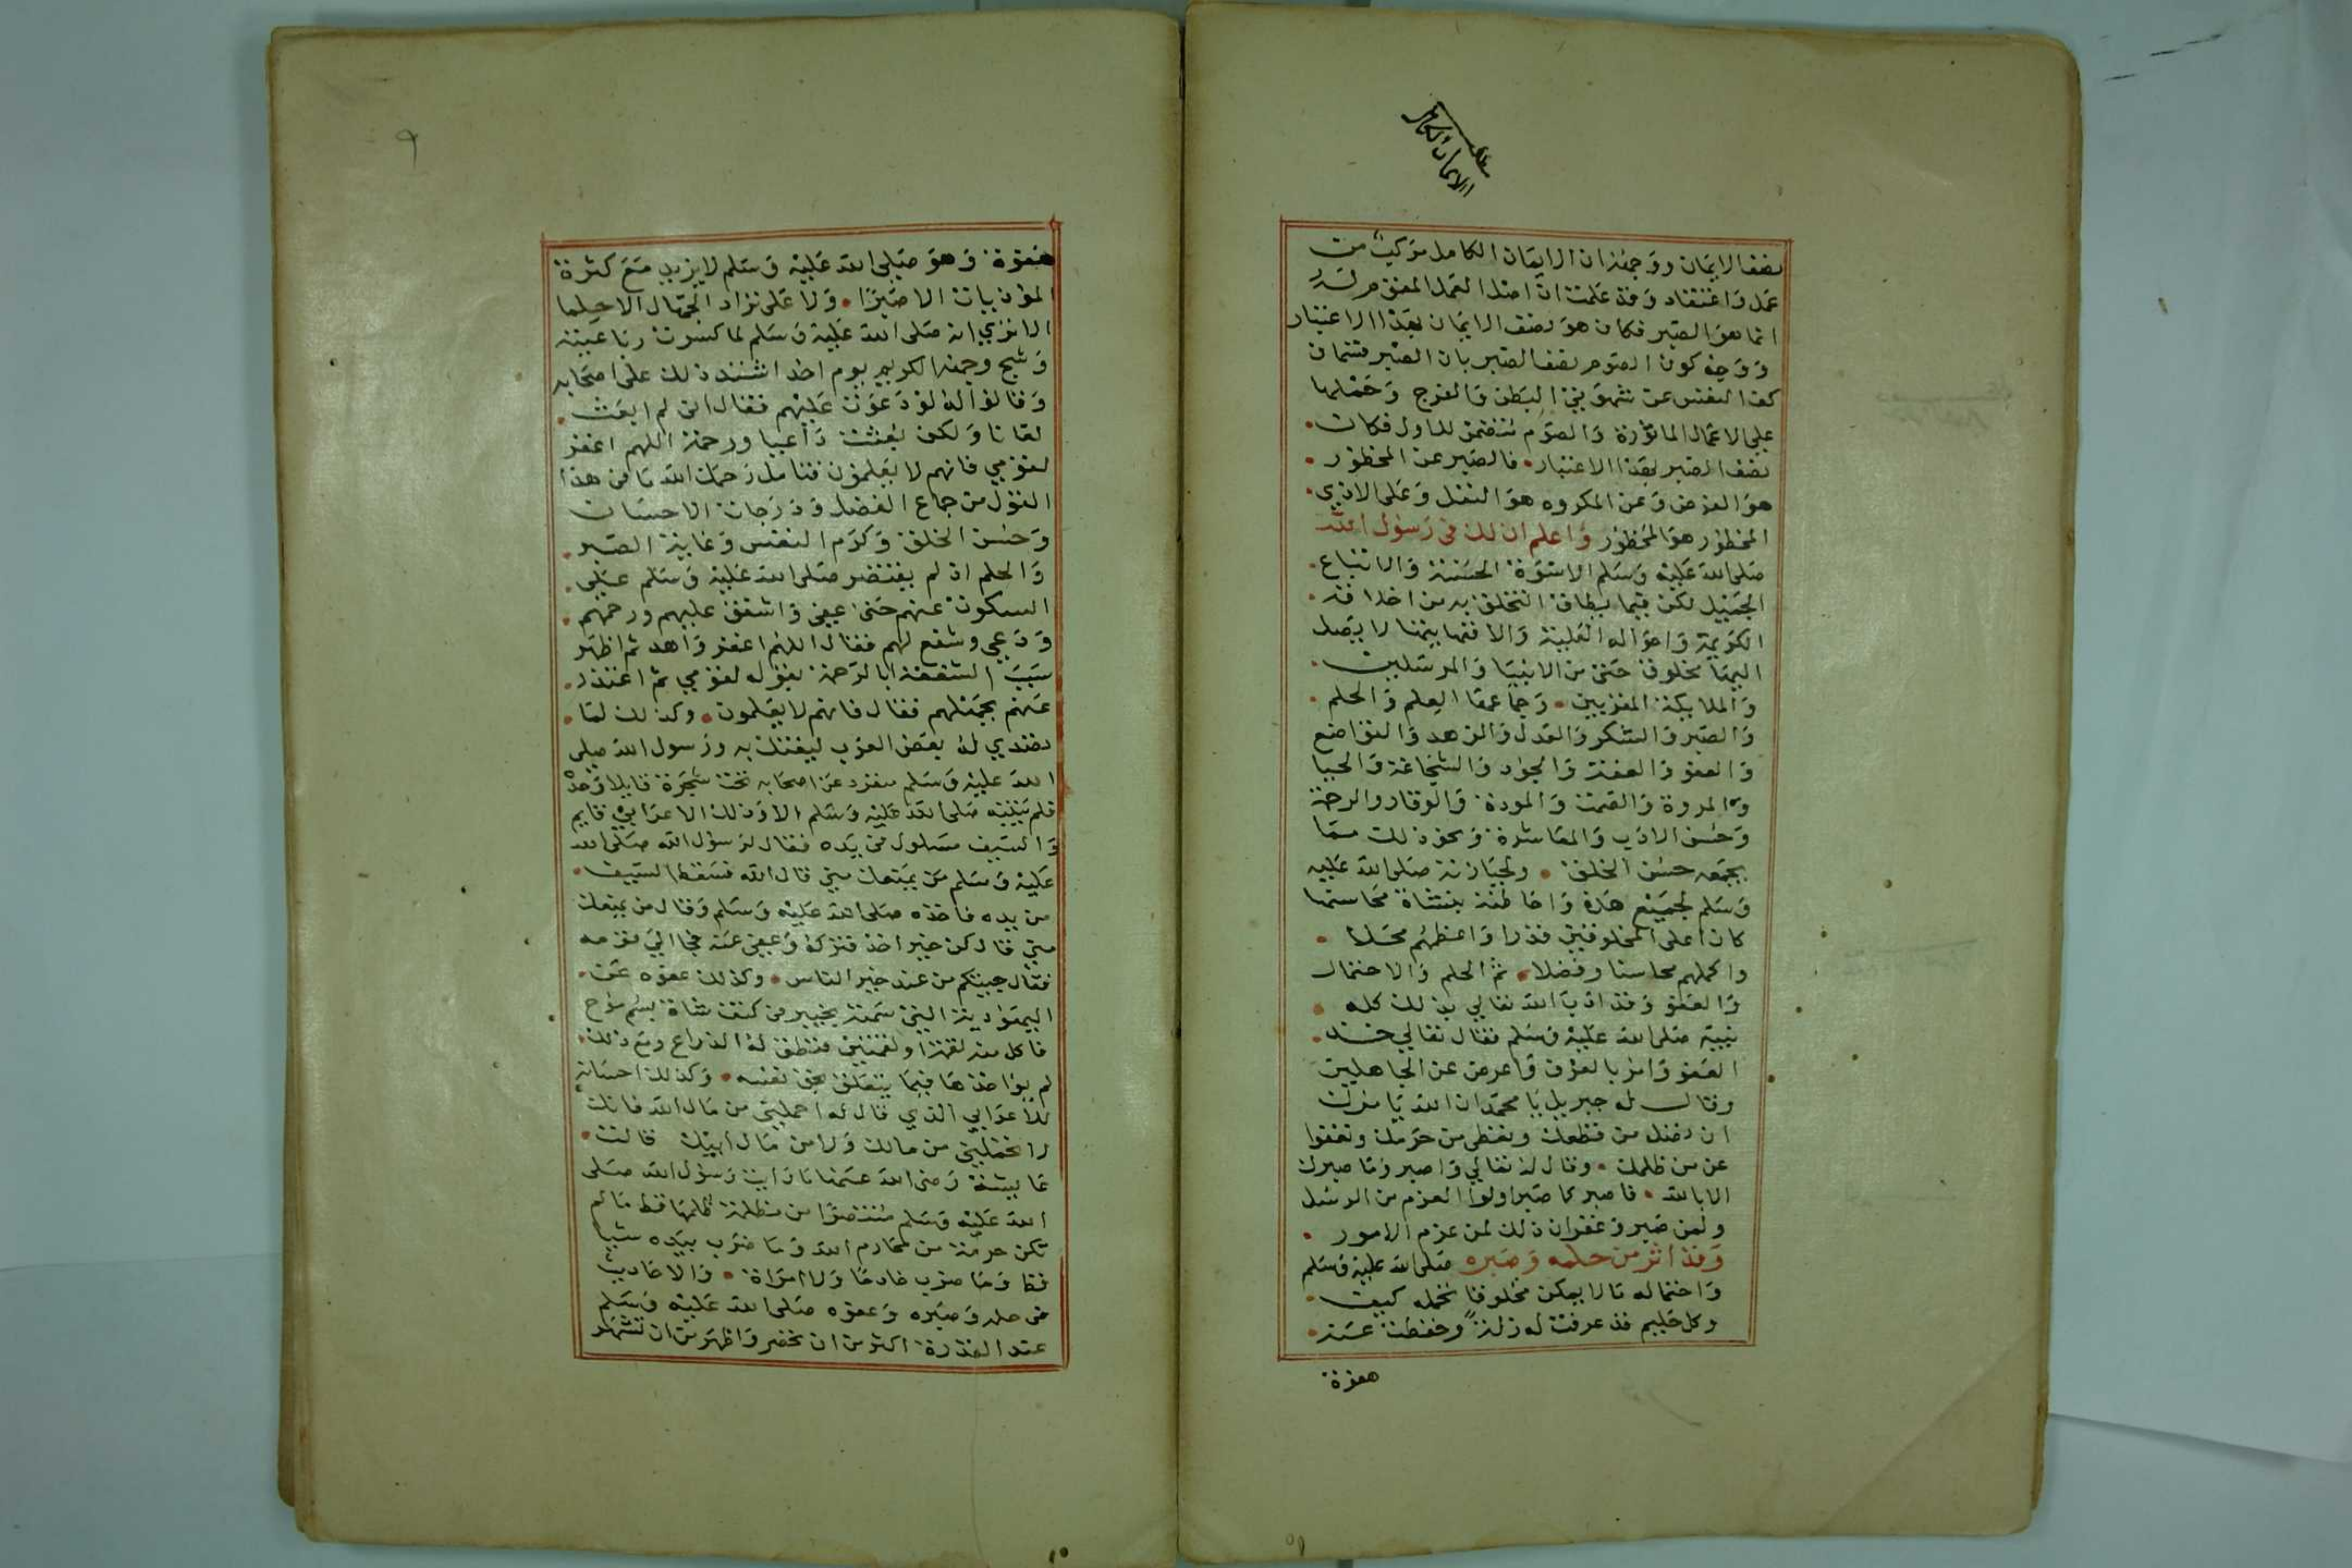 مطلب
الايمان الكامل
نصف الايمان ووجهه ان الايمان الكامل مركب من
عمل واعتقاد وقد علمت ان اصل العمل المقوم له
انما هو الصبر فكان هو نصف الايمان بهذا الاعتبار
ووجه كون الصوم نصف الصبر بان الصبر قسمان
كف النفس عن شهوتي البطن والفرج وحملها
على الاعمال الماثورة والصوم متضمن للاول فكان
نصف الصبر بهذا الاعتبار فالصبر عن المحظور
هو الفرض وعن المكروه هو النفل وعلى الاذي
المحظور هو المحظور واعلم ان لك في رسول الله
صلى الله عليه وسلم الاسوة الحسنة والاتباع
الجميل لكن فيما يطاق التخلق به من اخلاقه
الكريمة واحواله العلية والا فنهايتها لا يصل
اليها مخلوق حتى من الانبيا والمرسلين
والملايكة المقربين وجماعها العلم والحلم
والصبر والشكر والعدل والزهد والتواضع
والعفو والعفة والجود والشجاعة والحيا
والمروة والصمت والمودة والوقار والرحمة
وحسن الادب والمعاشرة ونحو ذلك مما
يجمعه حسن الخلق ولحيازته صلى الله عليه
وسلم لجميع هذه واحاطته بنشاة محاسنها
كان اعلى المخلوقين قدرا واعظمهم محلا
واكملهم محاسنا وفضلا ثم الحلم والاحتمال
والعفو وقد ادب الله تعالي بذلك كله
نبيه صلى الله عليه وسلم فقال تعالي خذ
العفو وامر بالعرف واعرض عن الجاهلين
وقال له جبريل يا محمد ان الله يامرك
ان تصل من قطعك وتعطي من حرمك وتعفوا
عن من ظلمك وقال له تعالي واصبر وما صبرك
الا بالله فاصبر كما صبر اولوا العزم من الرسل
ولمن صبر وغفر ان ذلك لمن عزم الامور
وقد اثر من حلمه وصبره صلى الله عليه وسلم
واحتماله ما لا يمكن مخلوقا تحمله كيف
وكل حليم قد عرفت له زلة وحفظت عنه
هفوة
٩
هفوة وهو صلى الله عليه وسلم لا يزيد مع كثرة
الموذيات الا صبرا ولا على نزاد الجهال الا حلما
الا تري انه صلى الله عليه وسلم لما كسرت رباعيته
وشج وجهه الكريم يوم احد اشتد ذلك على اصحابه
وقالوا له لو دعوت عليهم فقال اني لم ابعث
لعانا ولكن بعثت داعيا ورحمة اللهم اغفر
لقومي فانهم لا يعلمون فتامل رحمك الله ما في هذا
القول من جماع الفضل ودرجات الاحسان
وحسن الخلق وكرم النفس وغاية الصبر
والحلم اذ لم يقتصر صلى الله عليه وسلم على
السكوت عنهم حتى عفى واشفق عليهم ورحمهم
ودعي وشفع لهم فقال اللهم اغفر واهد ثم اظهر
سبب الشفقة ابالرحمة بقوله لقومي ثم اعتذر
عنهم بجهلهم فقال فانهم لا يعلمون وكذلك لما
تصدي له بعض العرب ليفتك به ورسول الله صلى
الله عليه وسلم منفرد عن اصحابه تحت شجرة قايلا وحده
فلم ينتبه صلى الله عليه وسلم الا وذلك الاعرابي قايم
والسيف مسلول في يده فقال لرسول الله صلى الله
عليه وسلم من يمنعك مني قال الله فسقط السيف
من يده فاخذه صلى الله عليه وسلم وقال من يمنعك
مني قال كن خير اخذ فتركه وعفى عنه فجا الي قومه
فقال جيتكم من عند خير الناس وكذلك عفوه عن
اليهودية التي سمته بخيبر في كتف شاة بسم
فاكل منه لقمة او لقمتين فنطق له الذراع ومع ذلك
لم يواخذها فيما يتعلق بحق نفسه وكذلك احسانه
للاعرابي الذي قال له احملني من مال الله فانك
لا تحملني من مالك ولا من مال ابيك قالت
عايشة رضى الله عنها ما رايت رسول الله صلى
الله عليه وسلم منتصرا من مظلمة ظلمها قط ما لم
تكن حرمة من محارم الله وما ضرب بيده شيا
قط وما ضرب خادما ولا امراة والاحاديث
في حلمه وصبره وعفوه صلى الله عليه وسلم
عند القدرة اكثر من ان تحصر واظهر من ان تشهر